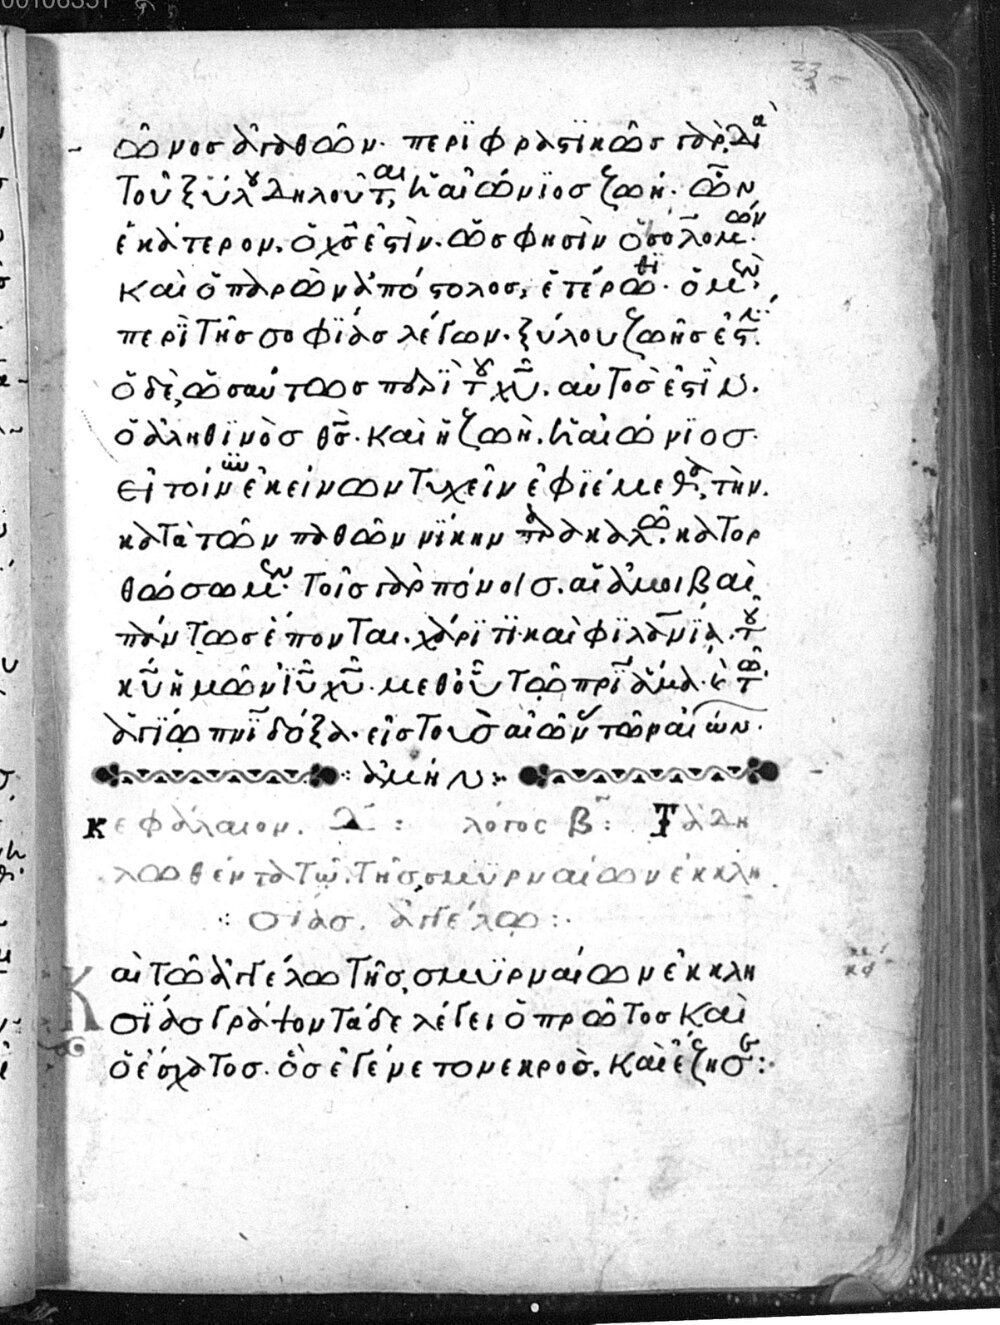 00106351
23
ῶνος ἀγαθῶν· περϊφραστϊκῶς γὰρ διὰ
Τοῦ ξύλου δηλοῦται, ἡ αἰώνϊος ζωή· ὧν
ἑκάτερον, ὁ χς ἐστὶν· ὥς φησὶν ὁ σολομῶν·
καὶ ὁ παρὼν ἀπόστολος, ἑτέρωθϊ· ὁ μὲν
περὶ Τῆς σοφΐας λέγων· ξύλου ζωῆς ἐστϊ·
ὁ δὲ, ὡσαύτως περὶ τοῦ χυ· αὐτος ἐστϊν.
ὁ ἀληθϊνὸς θς· καὶ ἡ ζωὴ. ἡ αἰώνϊος·
εἰ τοίνυν ἐκείνων Τυχεῖν ἐφϊέμεθα, τὴν.
κατὰ τῶν παθῶν νίκην παρακαλῶ. κατορ
θώσωμεν· Τοῖς γὰρ πόνοις. αἱ ἀμοιβαὶ
πάντως ἕπονται. χάρϊτϊ καὶ φϊλανϊα· τοῦ
κυ ἡμῶν ϊυ χυ· μεθ οὗ Τῷ πρϊ ἅμα· κ τῶ
ἁγίῳ πνϊ δόξα. εἰς Τους αἰῶν τῶν αἰώνων·
ἀμήν:
κεφάλαιον. δ : λόγος β : Τὰ δη
λωθέντα Τῷ. Τῆς, σμϋρναίων ἐκκλη
σίας. ἀγγέλῳ :.
Καὶ Τῶ ἀγγέλω Τῆς, σμϋρναίων ἐκκλη
σΐας Γράψον Τάδε λέγει ὁ πρῶτος καὶ
ὁ ἔσχατος. ὃς ἐγένετο νεκρος. καὶ ἔζησεν :·